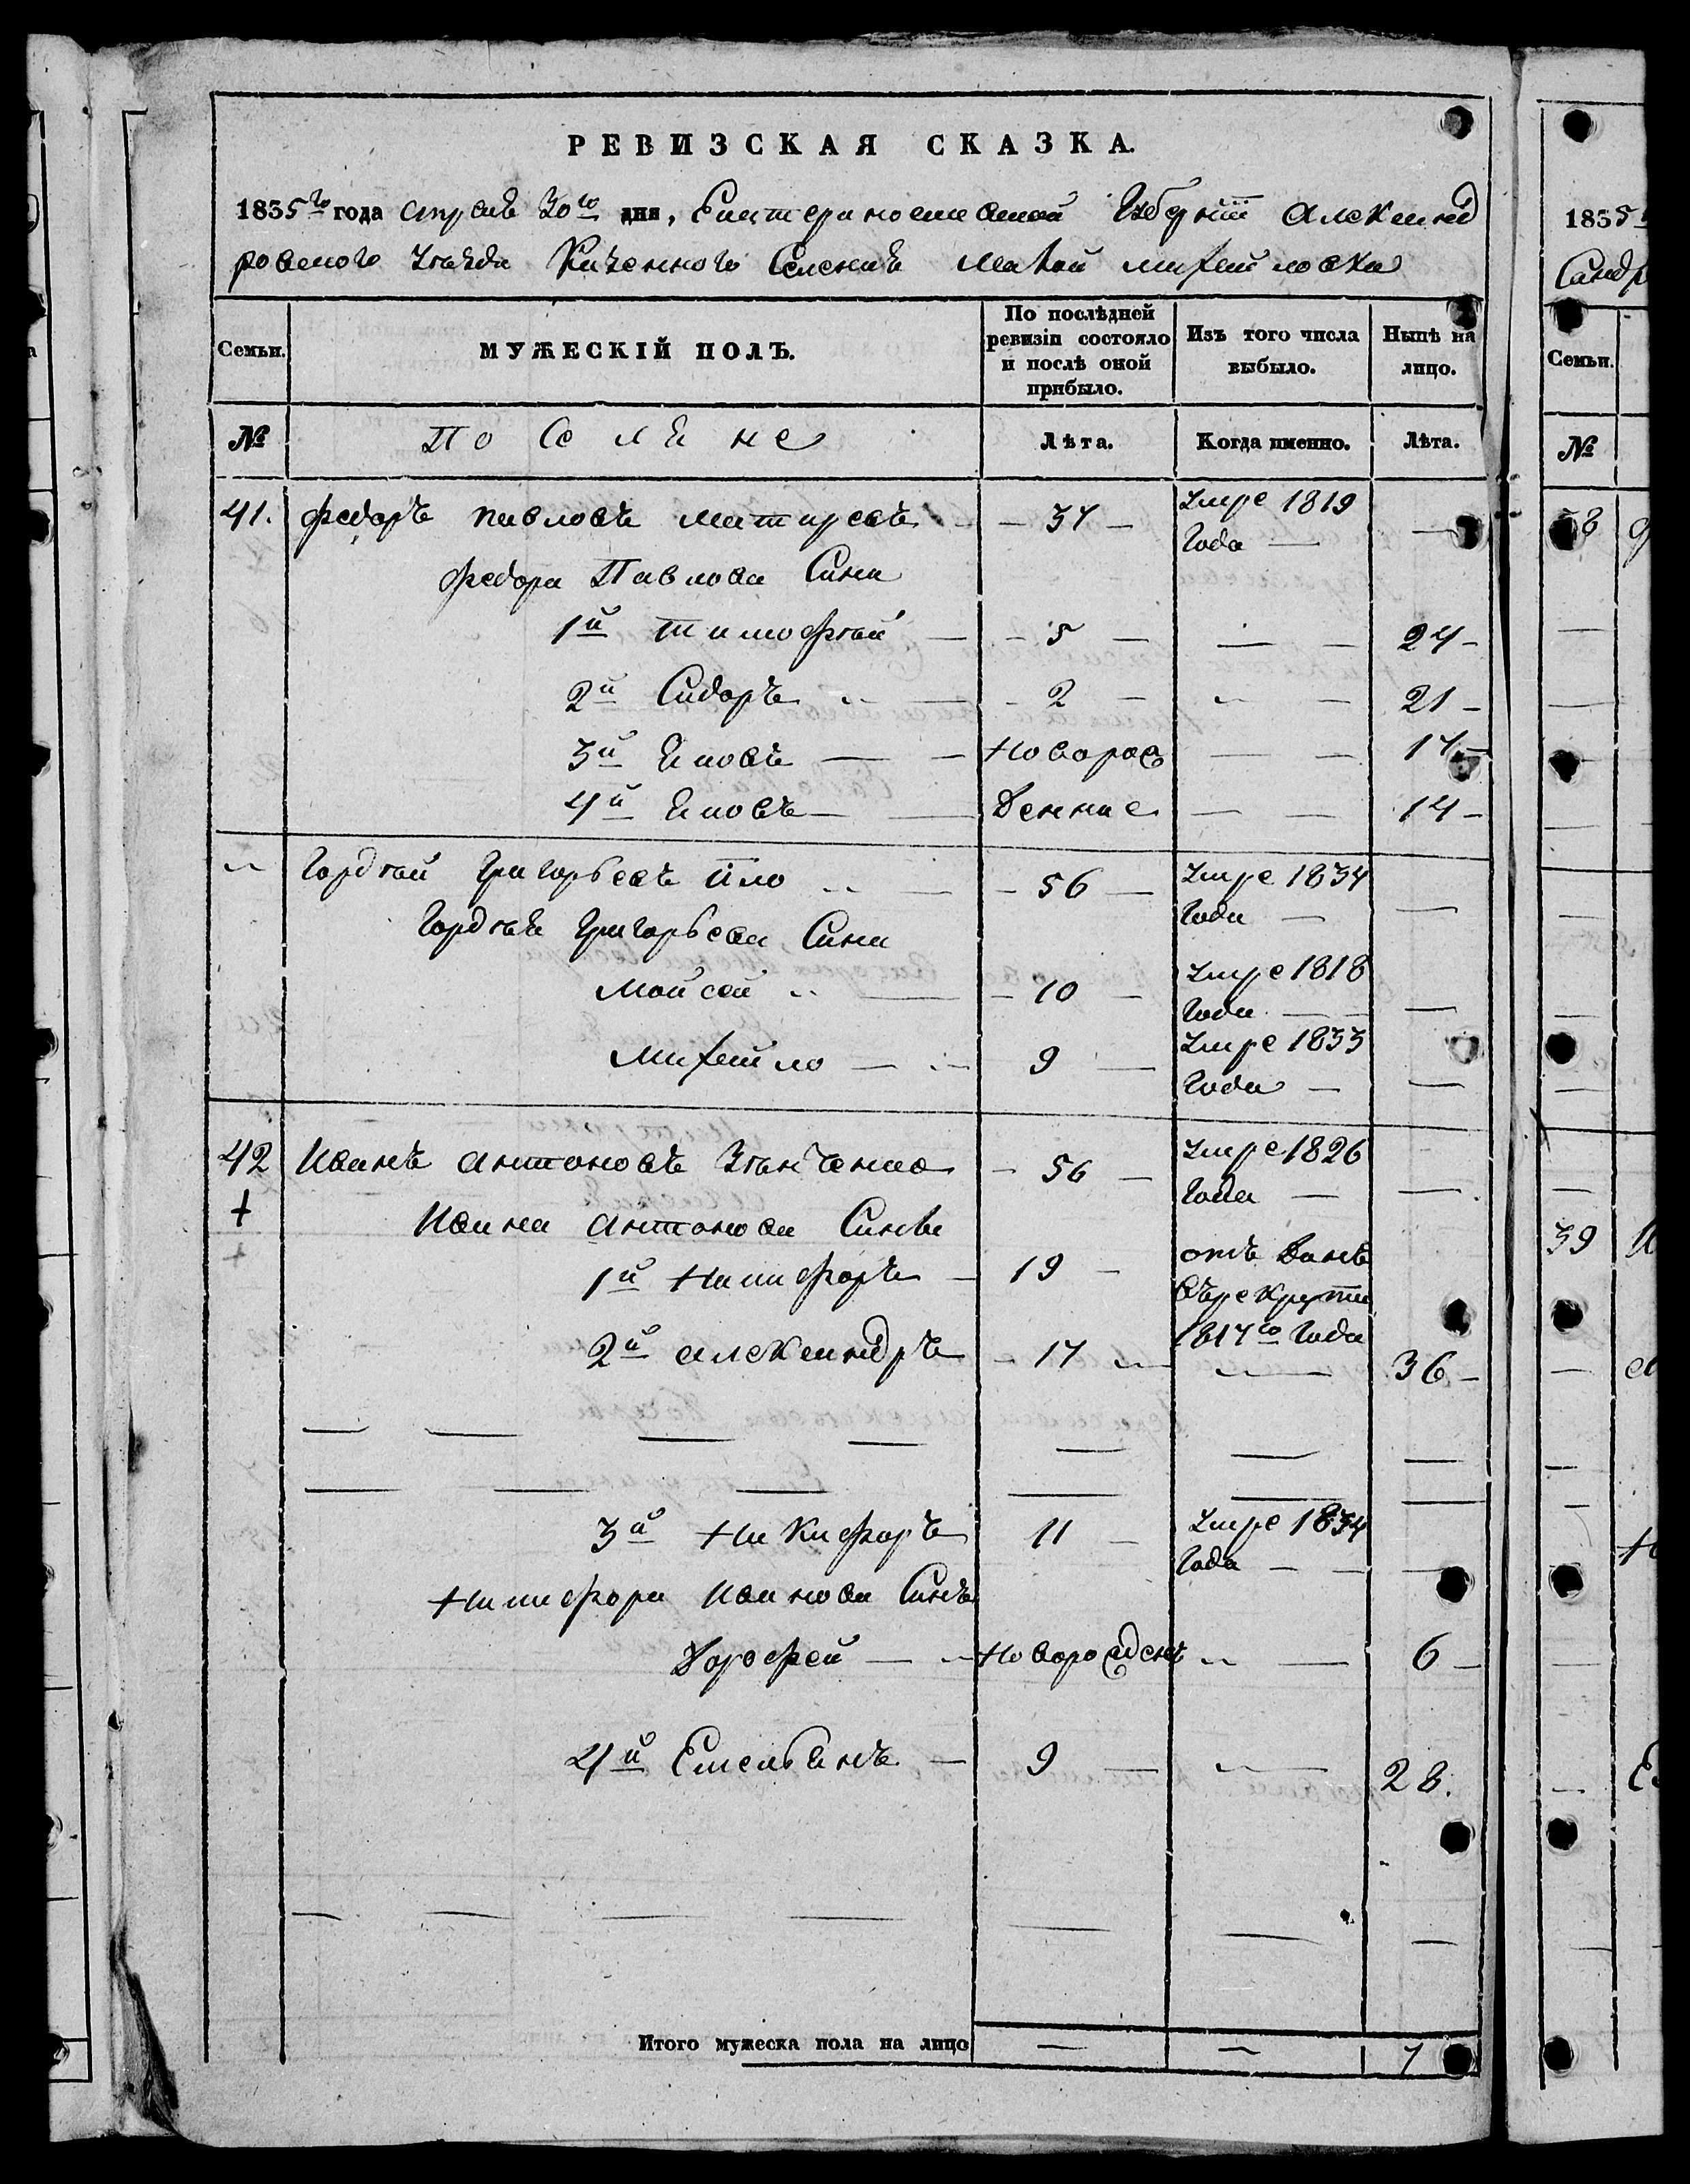 РЕВИЗСКАЯ СКАЗКА.
1835го года апреля 30го дня, Екатеринославской Губернии Александ
ровского Уезда Казенного Селения Малой михайловки
Семьи. МУЖЕСКІЙ ПОЛЪ. По послѣдней ревизіи состояло и послѣ оной прибыло. Изъ того числа выбыло. Нынѣ на лицо.
№ Поселяне Лѣта. Когда именно. Лѣта.
41. Федоръ павловъ - 37 - умре 1819 Года — —
Федора Павлова Сини
1й тимофѣй - 5 - — 24
2й Сидоръ - 2 - — 21
3й Яковъ — новорож — 17
4й Яковъ — денние — 14
Гордѣй Григорьевъ - 56 - умре 1834 Года — —
Гордѣя Григорьева Сини
Мойсей - 10 - умре 1818 Года — —
Михайло — 9 — умре 1833 Года — —
42 Иванъ антоновъ - 56 - умре 1826 Года — —
Ивана антонова Синъи
1й Никифоръ - 19 - отъ данъ въ рекруты 1817го Года
2й александръ - 17 — 36
3й Никифоръ 11 - умре 1834 Года — —
Никифора Иванова Синъ
Дорофей — новорожденъ — 6
4й Емельянъ — 9 — 28.
Итого мужеска пола на лицо — — 7
1835
Сандр
Семьи.
№
39